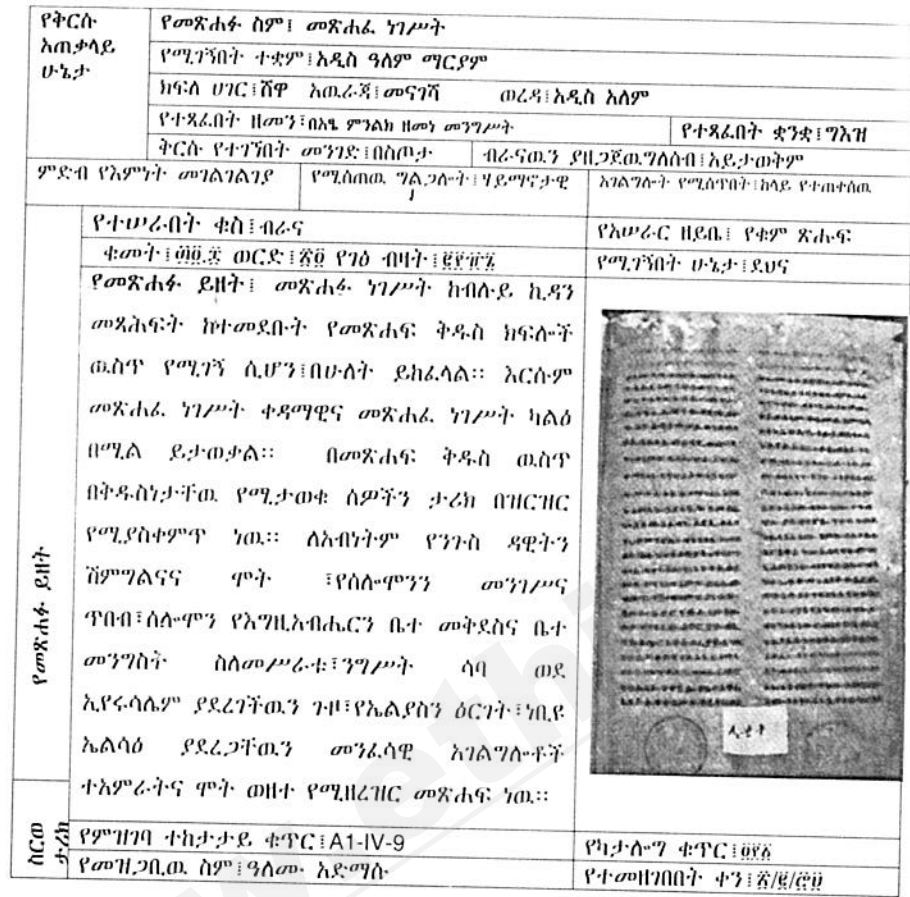 የቅርሱ አጠቃላይ ሁኔታ
የመጽሐፉ ስም፤ መጽሐፈ ነገሥት
የሚገኝበት ተቋም፤አዲስ ዓለም ማርያም
ክፍለ ሀገር፤ሸዋ አዉራጃ፤መናገሻ ወረዳ፤አዲስ አለም
የተጻፈበት ዘመን፤በአፄ ምንልክ ዘመነ መንግሥት የተጻፈበት ቋንቋ፤ግእዝ
ቅርሱ የተገኘበት መንገድ፤በስጦታ ብራናዉን ያዘጋጀዉ ግለሰብ፤አይታወቅም
ምድብ የእምነት መገልገልገያ የሚሰጠዉ ግልጋሎት፤ሃይማኖታዊ አገልግሎት የሚሰጥበት፤ከላይ የተጠቀሰዉ
የተሠራበት ቁስ፤ብራና የአሠራር ዘይቤ፤ የቁም ጽሑፍ
ቁመት፤ ወርድ፤ የገፅ ብዛት፤ የሚገኝበት ሁኔታ፤ደህና
የመጽሐፉ ይዘት
የመጽሐፉ ይዘት፤ መጽሐፈ ነገሥት ከብሉይ ኪዳን
መጻሕፍት ከተመደቡት የመጽሐፍ ቅዱስ ክፍሎች
ዉስጥ የሚገኝ ሲሆን፤በሁለት ይከፈላል። እርሱም
መጽሐፈ ነገሥት ቀዳማዊና መጽሐፈ ነገሥት ካልዕ
በሚል ይታወቃል። በመጽሐፍ ቅዱስ ዉስጥ
በቅዱስነታቸዉ የሚታወቁ ሰዎችን ታሪክ በዝርዝር
የሚያስቀምጥ ነዉ። ለአብነትም የንጉስ ዳዊትን
ሽምግልናና ሞት ፣የሰሎሞንን መንገሥና
ጥበብ፣ሰሎሞን የእግዚአብሔርን ቤተ መቅደስና ቤተ
መንግስት ስለመሥራቱ፣ንግሥት ሳባ ወደ
ኢየሩሳሌም ያደረገችዉን ጉዞ፣የኤልያስን ዕርገት፣ነቢዩ
ኤልሳዕ ያደረጋቸዉን መንፈሳዊ አገልግሎቶች
ተአምራትና ሞት ወዘተ የሚዘረዝር መጽሐፍ ነዉ።
ስርወ ታሪክ
የምዝገባ ተከታታይ ቁጥር፤A1-IV-9 የካታሎግ ቁጥር፤
የመዝጋቢዉ ስም፤ዓለሙ አድማሱ የተመዘገበበት ቀን፤